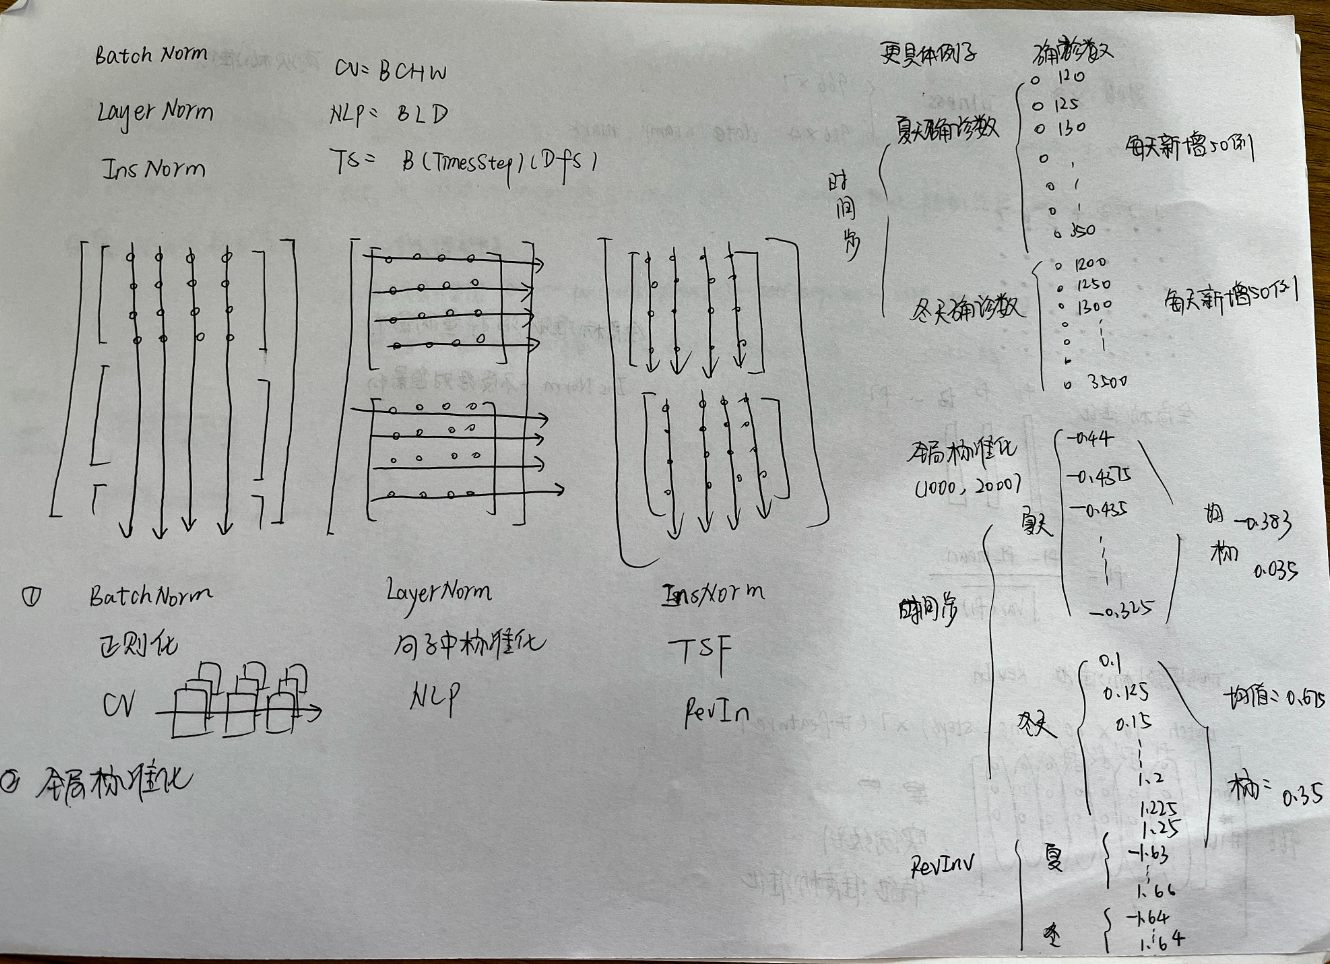 BatchNorm
CV= BCHW
LayerNorm
NLP= BLD
InsNorm
TS= B(TimesStep)(Dfs)
① BatchNorm
正则化
CV
LayerNorm
句子中标准化
NLP
InsNorm
TSF
RevIn
② 全局标准化
更具体例子
确诊数
时间步
夏天确诊数
120
125
130
350
每天新增50例
冬天确诊数
1200
1250
1300
3500
每天新增50例
全局标准化
(1000, 2000)
时间步
夏天
-0.44
-0.4375
-0.435
-0.325
均 -0.383
标 0.035
冬天
0.1
0.125
0.15
1.2
1.225
1.25
均值= 0.675
标= 0.35
RevInv
夏
-1.63
1.66
冬
-1.64
1.64